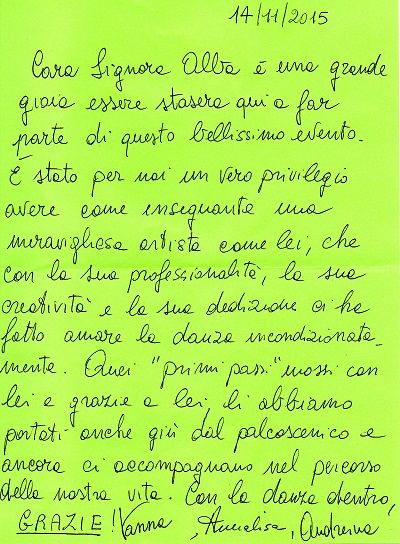 14/11/2015
Cara Signora Alba è una grande
gioia essere stasera qui a far
parte di questo bellissimo evento.
È stato per noi un vero privilegio
avere come insegnante una
meravigliosa artista come lei, che
con la sua professionalità, la sua
creatività e la sua dedizione ci ha
fatto amare la danza incondizionata-
mente. Quei "primi passi" mossi con
lei e grazie a lei, li abbiamo
portati anche giù dal palcoscenico e
ancora ci accompagnano nel percorso
della nostra vita. Con la danza dentro,
GRAZIE! Vanna, Annalisa, Andreina